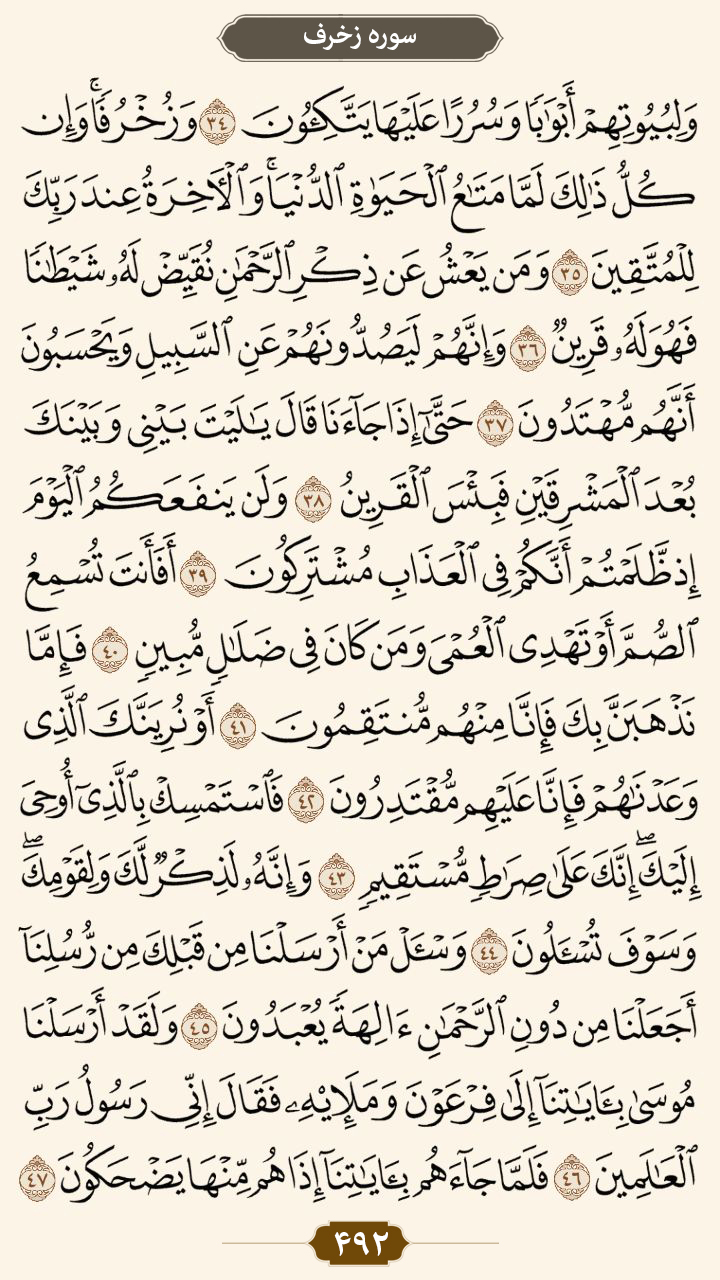 سوره زخرف
وَلِبُيُوتِهِمْ أَبْوَٰبًا وَسُرُرًا عَلَيْهَا يَتَّكِـُٔونَ ٣٤ وَزُخْرُفًاۚ وَإِن
كُلُّ ذَٰلِكَ لَمَّا مَتَـٰعُ ٱلْحَيَوٰةِ ٱلدُّنْيَاۚ وَٱلْـَٔاخِرَةُ عِندَ رَبِّكَ
لِلْمُتَّقِينَ ٣٥ وَمَن يَعْشُ عَن ذِكْرِ ٱلرَّحْمَـٰنِ نُقَيِّضْ لَهُۥ شَيْطَـٰنًا
فَهُوَ لَهُۥ قَرِينٌ ٣٦ وَإِنَّهُمْ لَيَصُدُّونَهُمْ عَنِ ٱلسَّبِيلِ وَيَحْسَبُونَ
أَنَّهُم مُّهْتَدُونَ ٣٧ حَتَّىٰٓ إِذَا جَآءَنَا قَالَ يَـٰلَيْتَ بَيْنِى وَبَيْنَكَ
بُعْدَ ٱلْمَشْرِقَيْنِ فَبِئْسَ ٱلْقَرِينُ ٣٨ وَلَن يَنفَعَكُمُ ٱلْيَوْمَ
إِذ ظَّلَمْتُمْ أَنَّكُمْ فِى ٱلْعَذَابِ مُشْتَرِكُونَ ٣٩ أَفَأَنتَ تُسْمِعُ
ٱلصُّمَّ أَوْ تَهْدِى ٱلْعُمْىَ وَمَن كَانَ فِى ضَلَـٰلٍ مُّبِينٍ ٤٠ فَإِمَّا
نَذْهَبَنَّ بِكَ فَإِنَّا مِنْهُم مُّنتَقِمُونَ ٤١ أَوْ نُرِيَنَّكَ ٱلَّذِى
وَعَدْنَـٰهُمْ فَإِنَّا عَلَيْهِم مُّقْتَدِرُونَ ٤٢ فَٱسْتَمْسِكْ بِٱلَّذِىٓ أُوحِىَ
إِلَيْكَۖ إِنَّكَ عَلَىٰ صِرَٰطٍ مُّسْتَقِيمٍ ٤٣ وَإِنَّهُۥ لَذِكْرٌ لَّكَ وَلِقَوْمِكَۖ
وَسَوْفَ تُسْـَٔلُونَ ٤٤ وَسْـَٔلْ مَنْ أَرْسَلْنَا مِن قَبْلِكَ مِن رُّسُلِنَآ
أَجَعَلْنَا مِن دُونِ ٱلرَّحْمَـٰنِ ءَالِهَةً يُعْبَدُونَ ٤٥ وَلَقَدْ أَرْسَلْنَا
مُوسَىٰ بِـَٔايَـٰتِنَآ إِلَىٰ فِرْعَوْنَ وَمَلَإِيْهِۦ فَقَالَ إِنِّى رَسُولُ رَبِّ
ٱلْعَـٰلَمِينَ ٤٦ فَلَمَّا جَآءَهُم بِـَٔايَـٰتِنَآ إِذَا هُم مِّنْهَا يَضْحَكُونَ ٤٧
۴۹۲